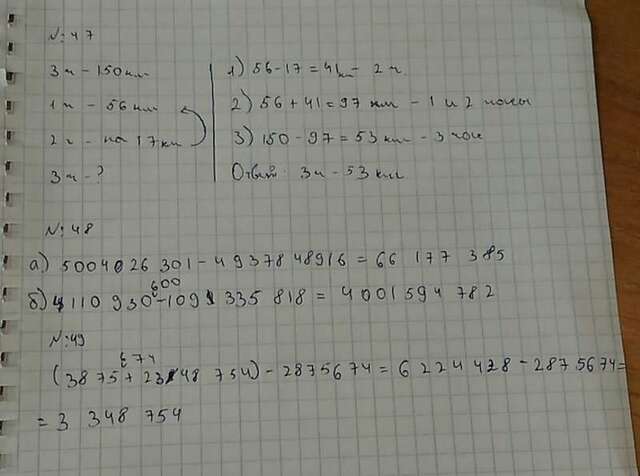 №: 47
3 ч - 150 км
1 ч - 56 км
2 ч - на 17 км
3 ч - ?
1) 56-17=41 км - 2 ч.
2) 56+41=97 км - 1 и 2
3) 150-97=53 км - 3
Ответ: 3 ч - 53 км
№: 48
а) 5004026 301-4 9378 48916 = 66 177 385
б) 4110 930 600-109 335 818 = 4001594 782
№: 49
(3875 674+2348 754)-2875674=6 224 428-2875674=
=3 348 754